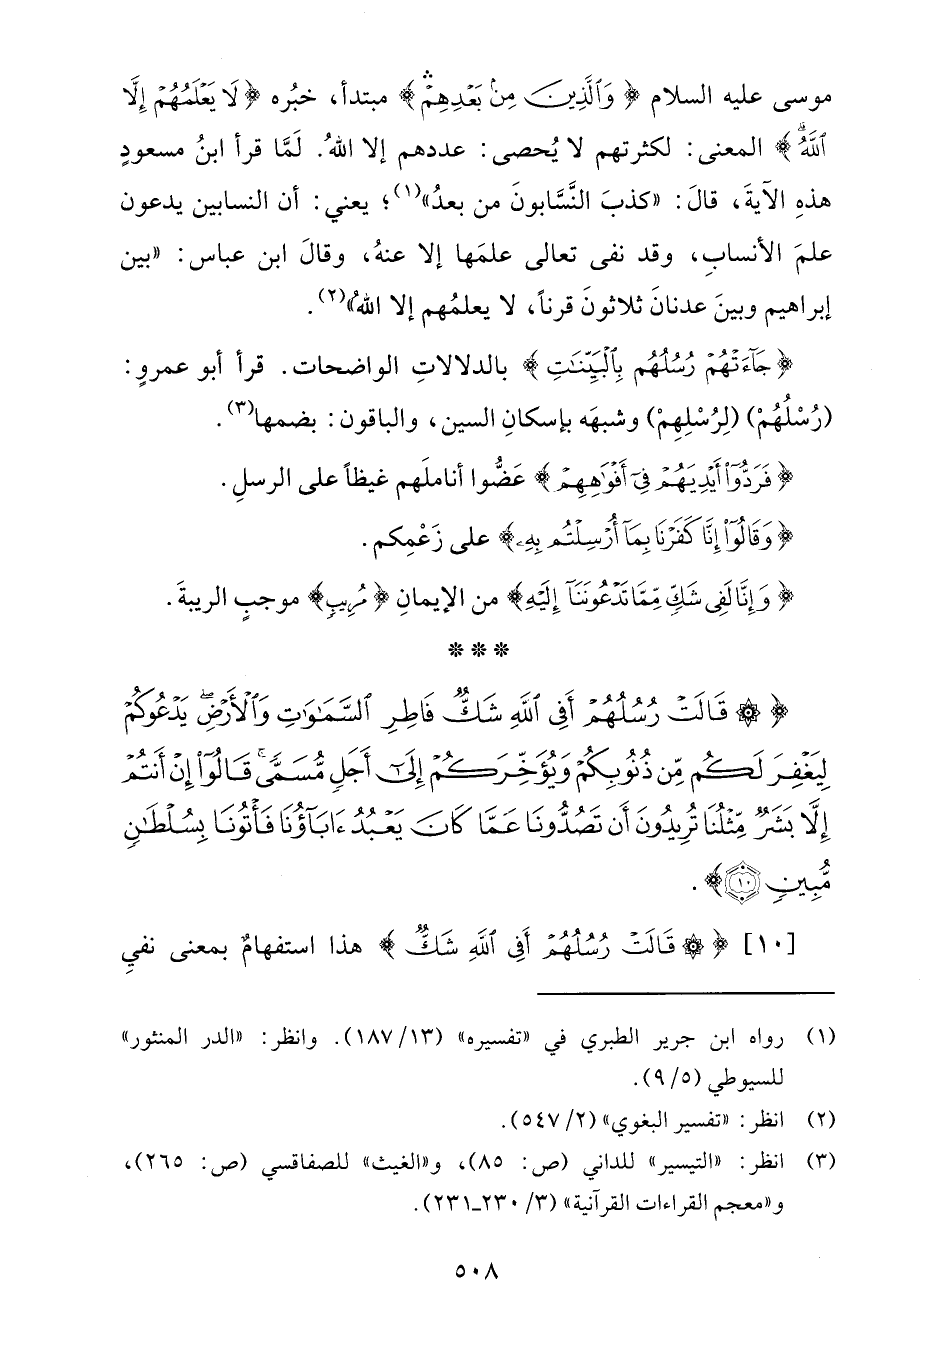 موسى عليه السلام ﴿ وَٱلَّذِينَ مِنۢ بَعْدِهِمْ ۛ ﴾ مبتدأ، خبُره ﴿ لَا يَعْلَمُهُمْ إِلَّا
ٱللَّهُ ۚ ﴾ المعنى: لكثرتهم لا يُحصى: عددهم إلا اللهُ. لَمَّا قرأ ابنُ مسعودٍ
هذهِ الآيةَ، قالَ: «كذبَ النَّسَّابونَ من بعدُ»(١)؛ يعني: أن النسابين يدعون
علمَ الأنسابِ، وقد نفى تعالى علمَها إلا عنهُ، وقالَ ابن عباس: «بين
إبراهيم وبينَ عدنانَ ثلاثونَ قرناً، لا يعلمُهم إلا اللهُ»(٢).
﴿ جَآءَتْهُمْ رُسُلُهُم بِٱلْبَيِّنَـٰتِ ﴾ بالدلالاتِ الواضحات. قرأ أبو عمروٍ:
(رُسْلُهُمْ) (لِرُسْلِهِمْ) وشبهَه بإسكانِ السين، والباقون: بضمها(٣).
﴿ فَرَدُّوٓا۟ أَيْدِيَهُمْ فِىٓ أَفْوَٰهِهِمْ ﴾ عَضُّوا أناملَهم غيظاً على الرسلِ.
﴿ وَقَالُوٓا۟ إِنَّا كَفَرْنَا بِمَآ أُرْسِلْتُم بِهِۦ ﴾ على زَعْمِكم.
﴿ وَإِنَّا لَفِى شَكٍّ مِّمَّا تَدْعُونَنَآ إِلَيْهِ ﴾ من الإيمانِ ﴿ مُرِيبٍ ﴾ موجبٍ الريبةَ.
* * *
﴿ ۞ قَالَتْ رُسُلُهُمْ أَفِى ٱللَّهِ شَكٌّ فَاطِرِ ٱلسَّمَـٰوَٰتِ وَٱلْأَرْضِ ۖ يَدْعُوكُمْ
لِيَغْفِرَ لَكُم مِّن ذُنُوبِكُمْ وَيُؤَخِّرَكُمْ إِلَىٰٓ أَجَلٍ مُّسَمًّى ۚ قَالُوٓا۟ إِنْ أَنتُمْ
إِلَّا بَشَرٌ مِّثْلُنَا تُرِيدُونَ أَن تَصُدُّونَا عَمَّا كَانَ يَعْبُدُ ءَابَآؤُنَا فَأْتُونَا بِسُلْطَـٰنٍ
مُّبِينٍ ١٠ ﴾.
[١٠] ﴿ ۞ قَالَتْ رُسُلُهُمْ أَفِى ٱللَّهِ شَكٌّ ﴾ هذا استفهامٌ بمعنى نفيِ
(١) رواه ابن جرير الطبري في «تفسيره» (١٣/ ١٨٧). وانظر: «الدر المنثور»
للسيوطي (٥/ ٩).
(٢) انظر: «تفسير البغوي» (٢/ ٥٤٧).
(٣) انظر: «التيسير» للداني (ص: ٨٥)، و«الغيث» للصفاقسي (ص: ٢٦٥)،
و«معجم القراءات القرآنية» (٣/ ٢٣٠ـ٢٣١).
٥٠٨